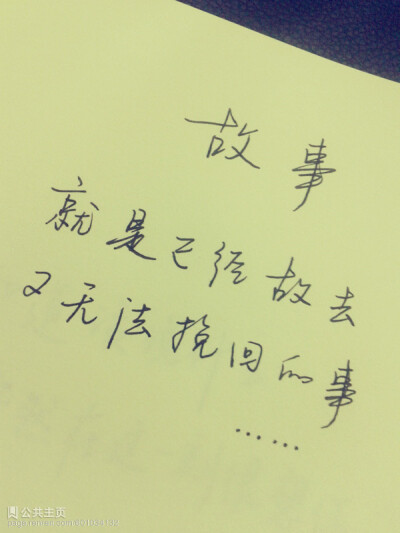 故事
就是已经故去
又无法挽回的事
……
公共主页